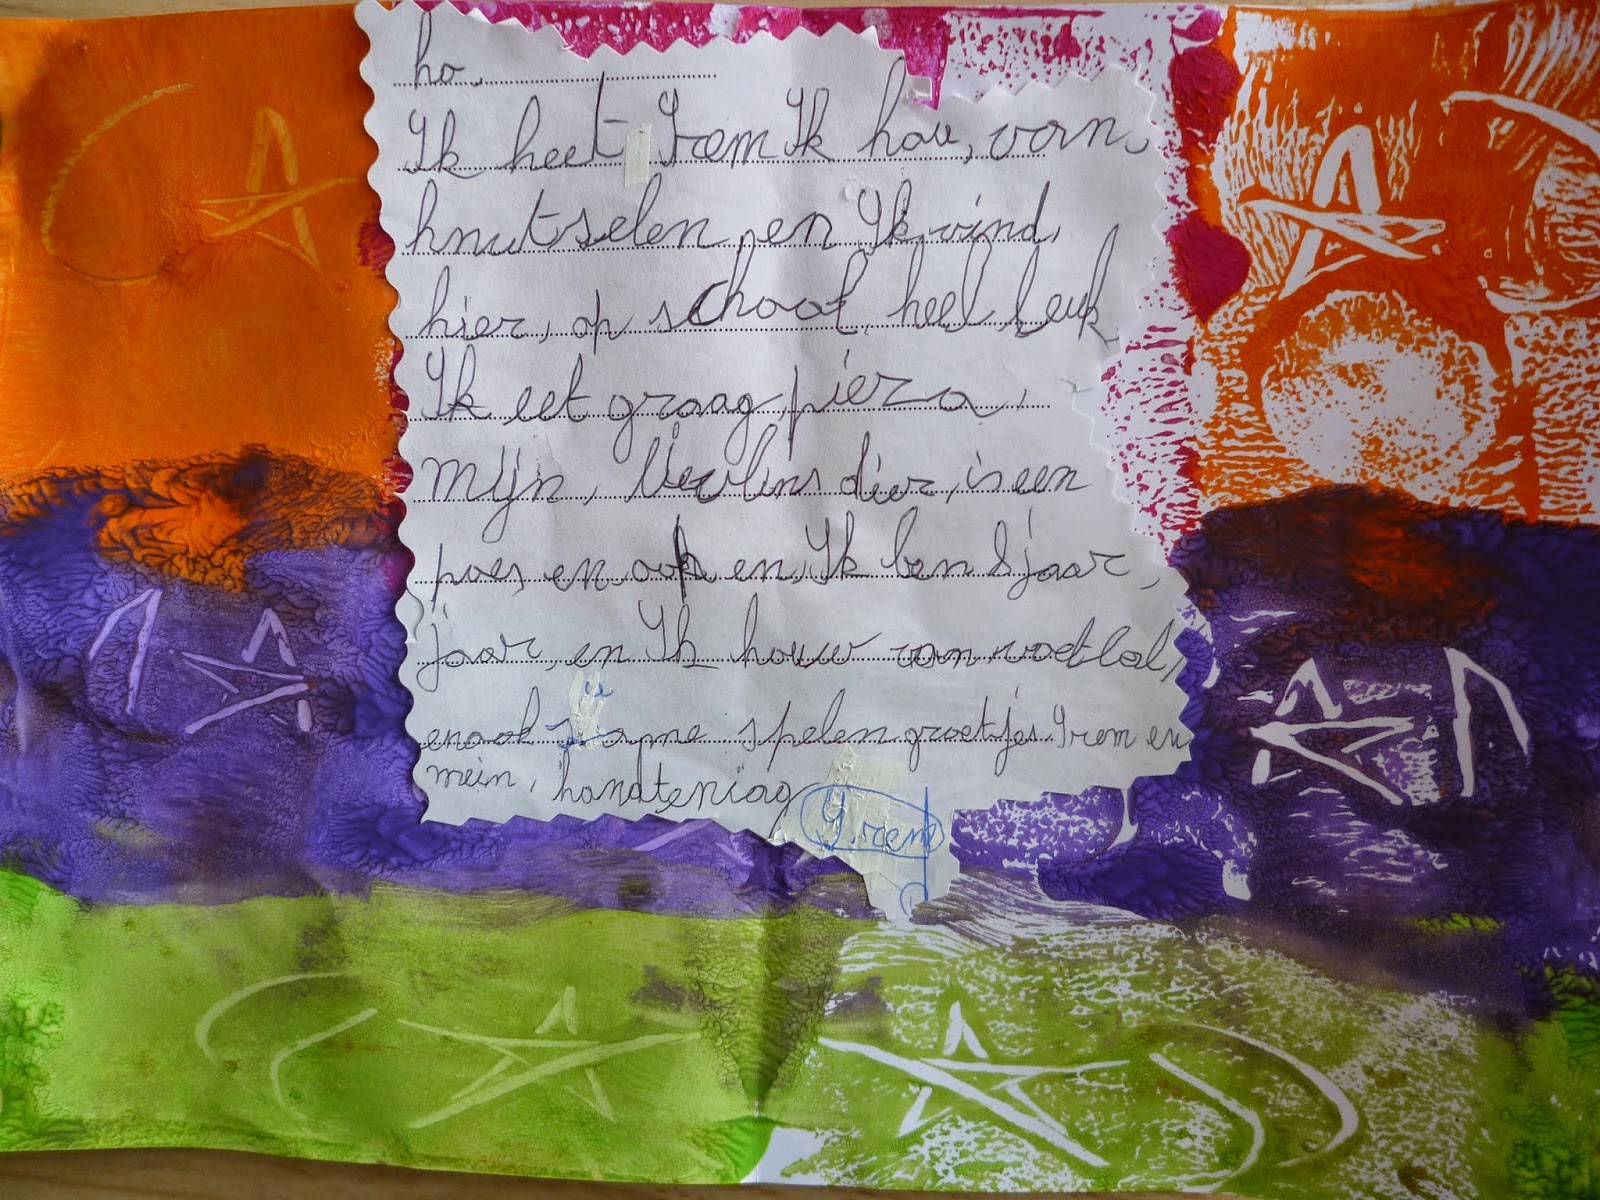 ho.
Ik heet Irem Ik hou, van
knutselen en Ik vind
hier, op school heel leuk
Ik eet graag pizza,
Mijn, dier, is een
poes en ook en Ik ben 8 jaar,
jaar, en Ik houw van voetbal,
enook same spelen groetjes Irem en
mein, handteniag
Irem